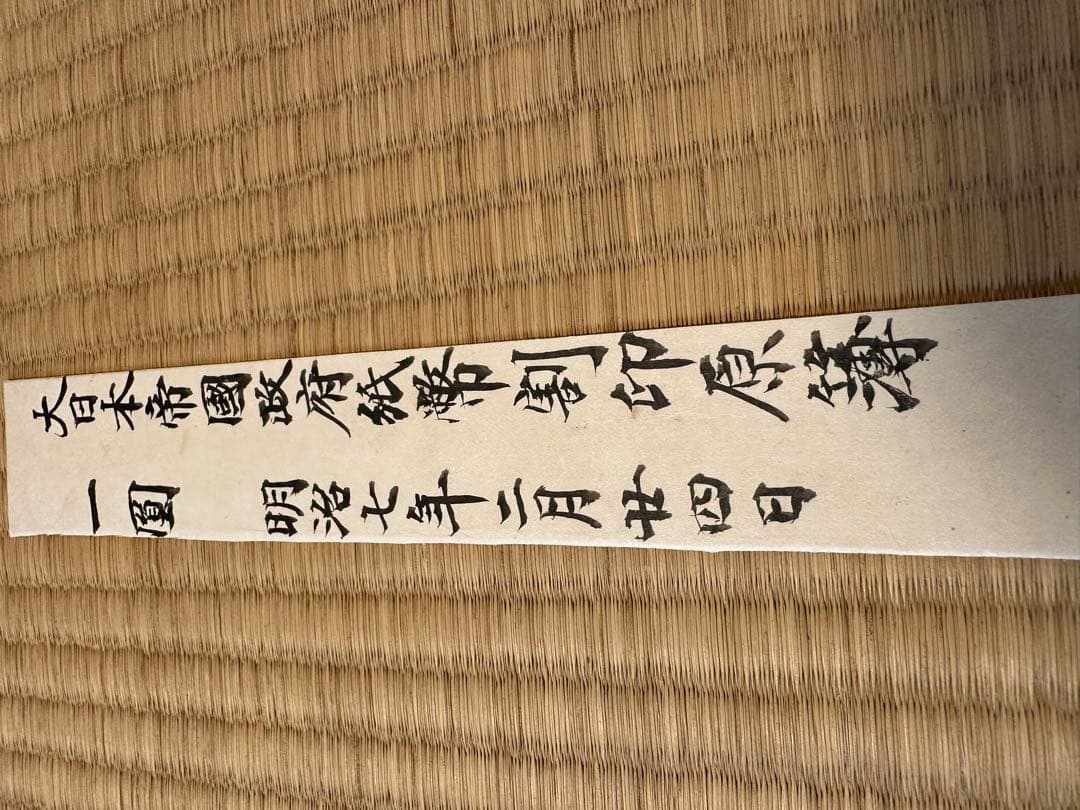 大日本帝國政府紙幣割印原簿
一圓 明治七年二月廿四日